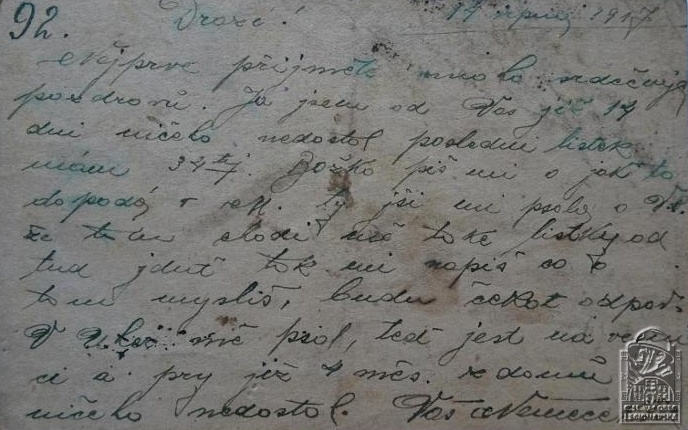 92. Drazí! 17 srpna 1917
Nejprve přijměte mnoho srdečných
pozdravů. Já jsem od Vás již 17
dní ničeho nedostal poslední lístek
mám 32 tý. Božko piš mi o jak to
dopadá, ty jsi mi psala o
že tam chodí též také lístky od
tud jdouc tak mi napiš co o
tom myslíš, budu čekat odpoť.
V psal, teď jest na
ci a prý již 4 měs. z domů
ničeho nedostal. Váš Němeček